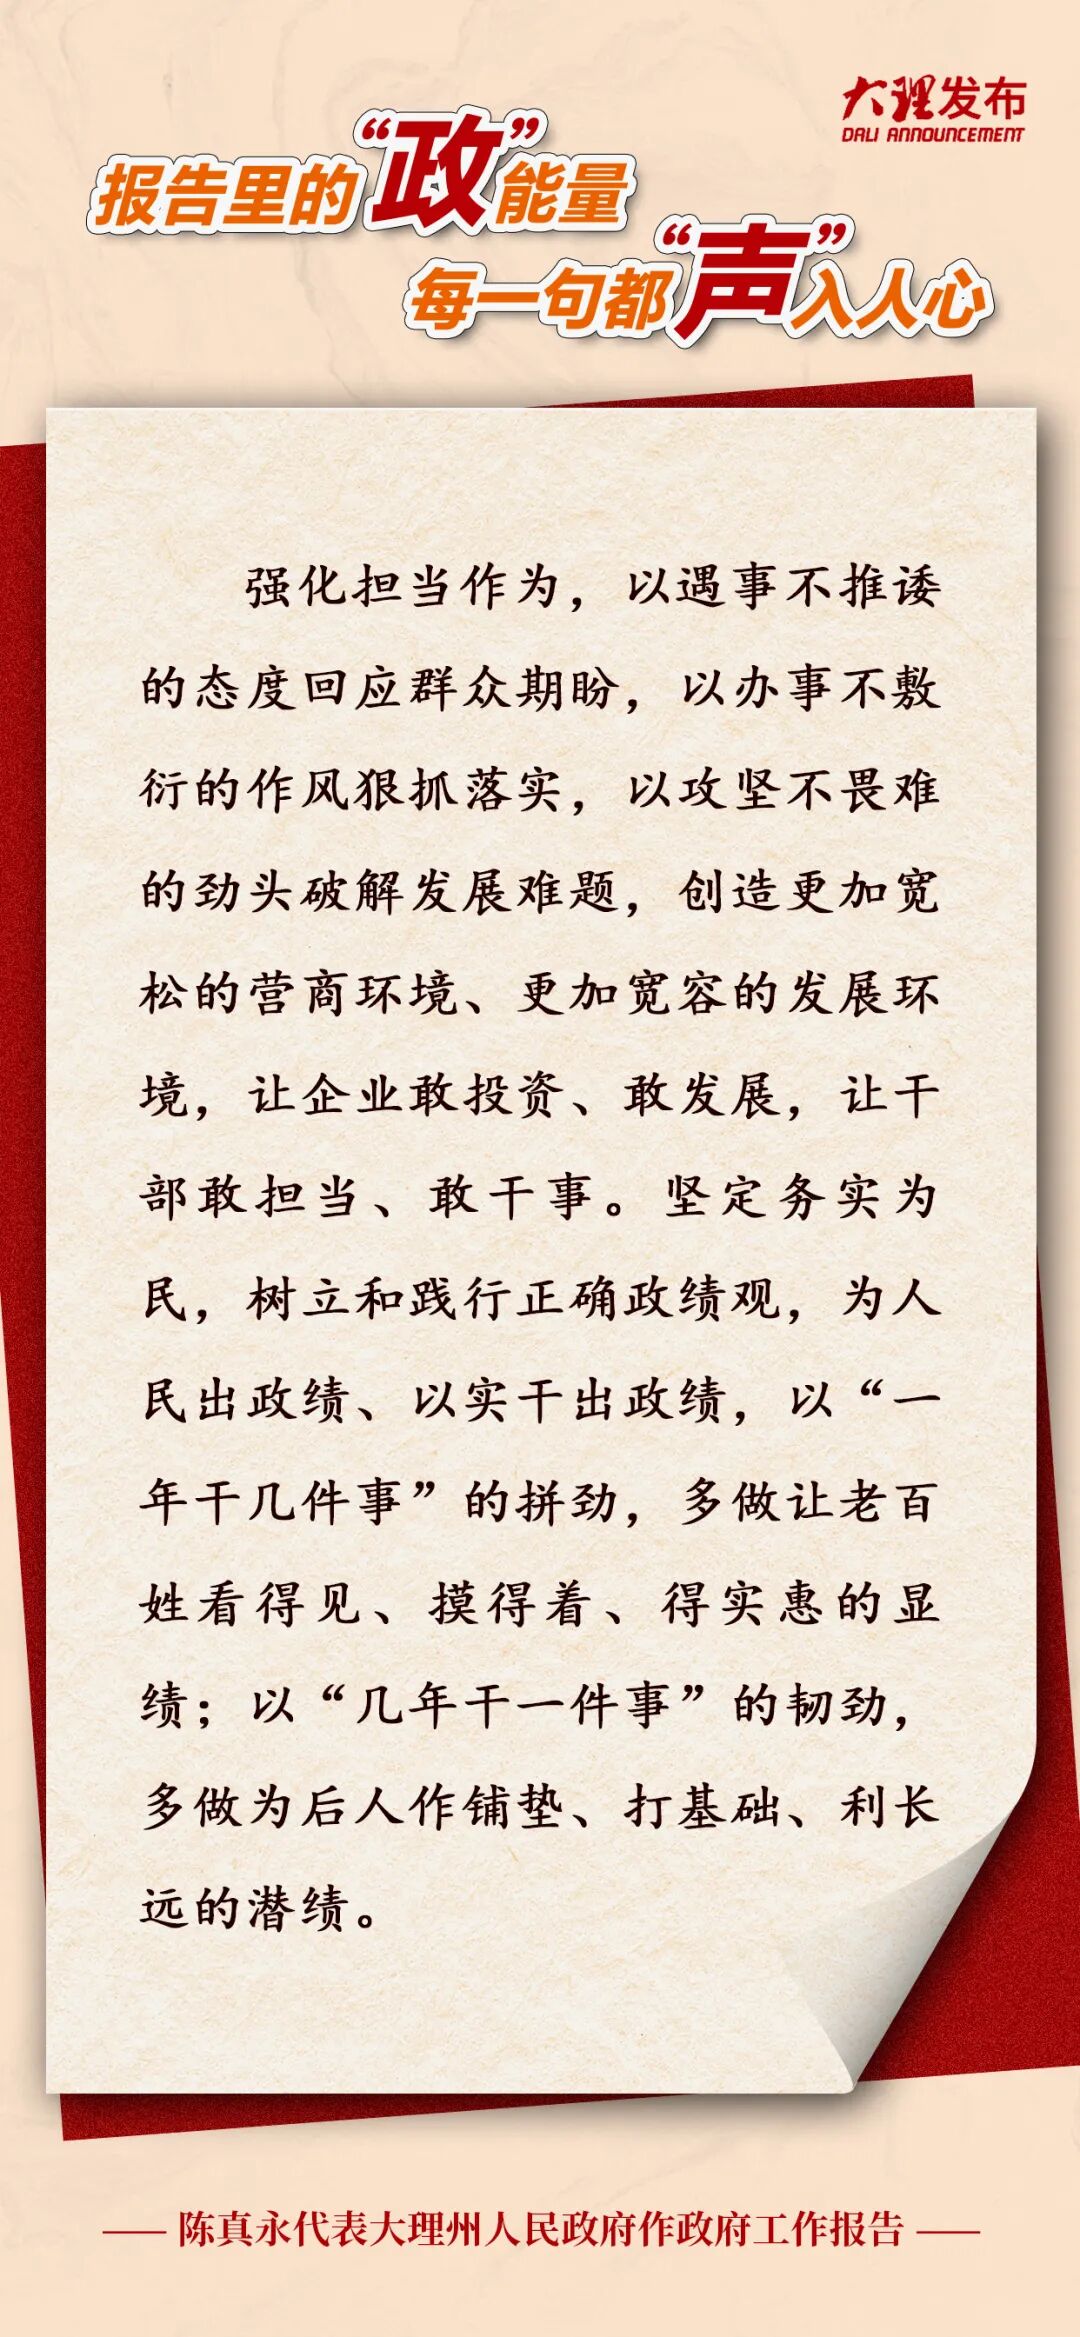 大理发布
DALI ANNOUNCEMENT
报告里的“政”能量
每一句都“声”入人心
强化担当作为，以遇事不推诿
的态度回应群众期盼，以办事不敷
衍的作风狠抓落实，以攻坚不畏难
的劲头破解发展难题，创造更加宽
松的营商环境、更加宽容的发展环
境，让企业敢投资、敢发展，让干
部敢担当、敢干事。坚定务实为
民，树立和践行正确政绩观，为人
民出政绩、以实干出政绩，以“一
年干几件事”的拼劲，多做让老百
姓看得见、摸得着、得实惠的显
绩；以“几年干一件事”的韧劲，
多做为后人作铺垫、打基础、利长
远的潜绩。
—— 陈真永代表大理州人民政府作政府工作报告 ——